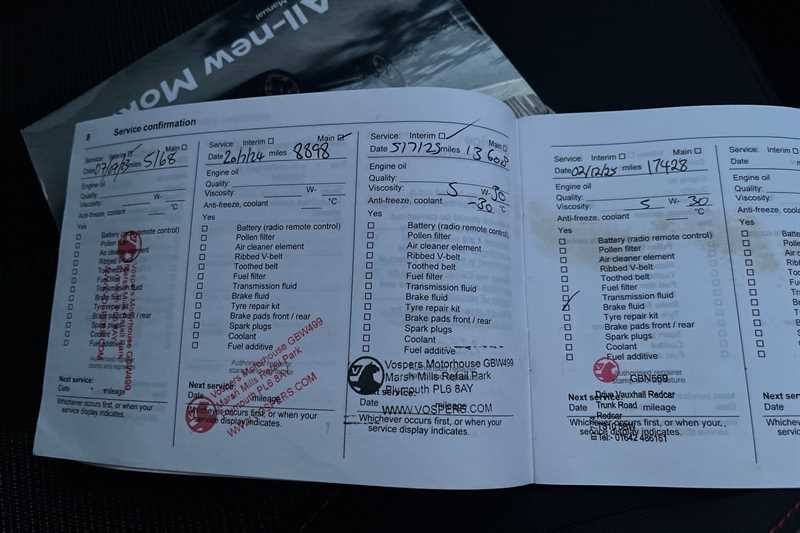 All-new Mok
Manual
8 Service confirmation
Service: Interim Main
Date miles 5168
Engine oil
Quality:
Viscosity: W-
Anti-freeze, coolant °C
Yes
Battery (radio remote control)
Pollen filter
Air cleaner element
Ribbed V-belt
Toothed belt
Fuel filter
Transmission fluid
Brake fluid
Tyre repair kit
Brake pads front / rear
Spark plugs
Coolant
Fuel additive
Next service:
Date mileage
Whichever occurs first, or when your
service display indicates.
Service: Interim Main
Date 20/7/24 miles 8898
Engine oil
Quality:
Viscosity: W-
Anti-freeze, coolant °C
Yes
Battery (radio remote control)
Pollen filter
Air cleaner element
Ribbed V-belt
Toothed belt
Fuel filter
Transmission fluid
Brake fluid
Tyre repair kit
Brake pads front / rear
Spark plugs
Coolant
Fuel additive
Vospers Motorhouse GBW499
Marsh Mills Retail Park
Plymouth PL6 8AY
WWW.VOSPERS.COM
Next service:
Date mileage
Whichever occurs first, or when your
service display indicates.
Service: Interim Main
Date 5/7/25 miles 13608
Engine oil
Quality:
Viscosity: 5 W- 30
Anti-freeze, coolant -30 °C
Yes
Battery (radio remote control)
Pollen filter
Air cleaner element
Ribbed V-belt
Toothed belt
Fuel filter
Transmission fluid
Brake fluid
Tyre repair kit
Brake pads front / rear
Spark plugs
Coolant
Fuel additive
Vospers Motorhouse GBW499
Marsh Mills Retail Park
Plymouth PL6 8AY
WWW.VOSPERS.COM
Date mileage
Whichever occurs first, or when your
service display indicates.
Service: Interim Main
Date 02/12/25 miles 17428
Engine oil
Quality:
Viscosity: 5 W- 30
Anti-freeze, coolant °C
Yes
Battery (radio remote control)
Pollen filter
Air cleaner element
Ribbed V-belt
Toothed belt
Fuel filter
Transmission fluid
Brake fluid
Tyre repair kit
Brake pads front / rear
Spark plugs
Coolant
Fuel additive
Authorised repairer
GBN569
Next service:
Date mileage
Drive Vauxhall Redcar
Trunk Road
Redcar
Whichever occurs first, or when your
service display indicates.
Tel:- 01642 486161
Service:
Date
Engine oil
Quality:
Viscosity:
Anti-freeze, coolant
Yes
Next service:
Date
Whichever occurs
service